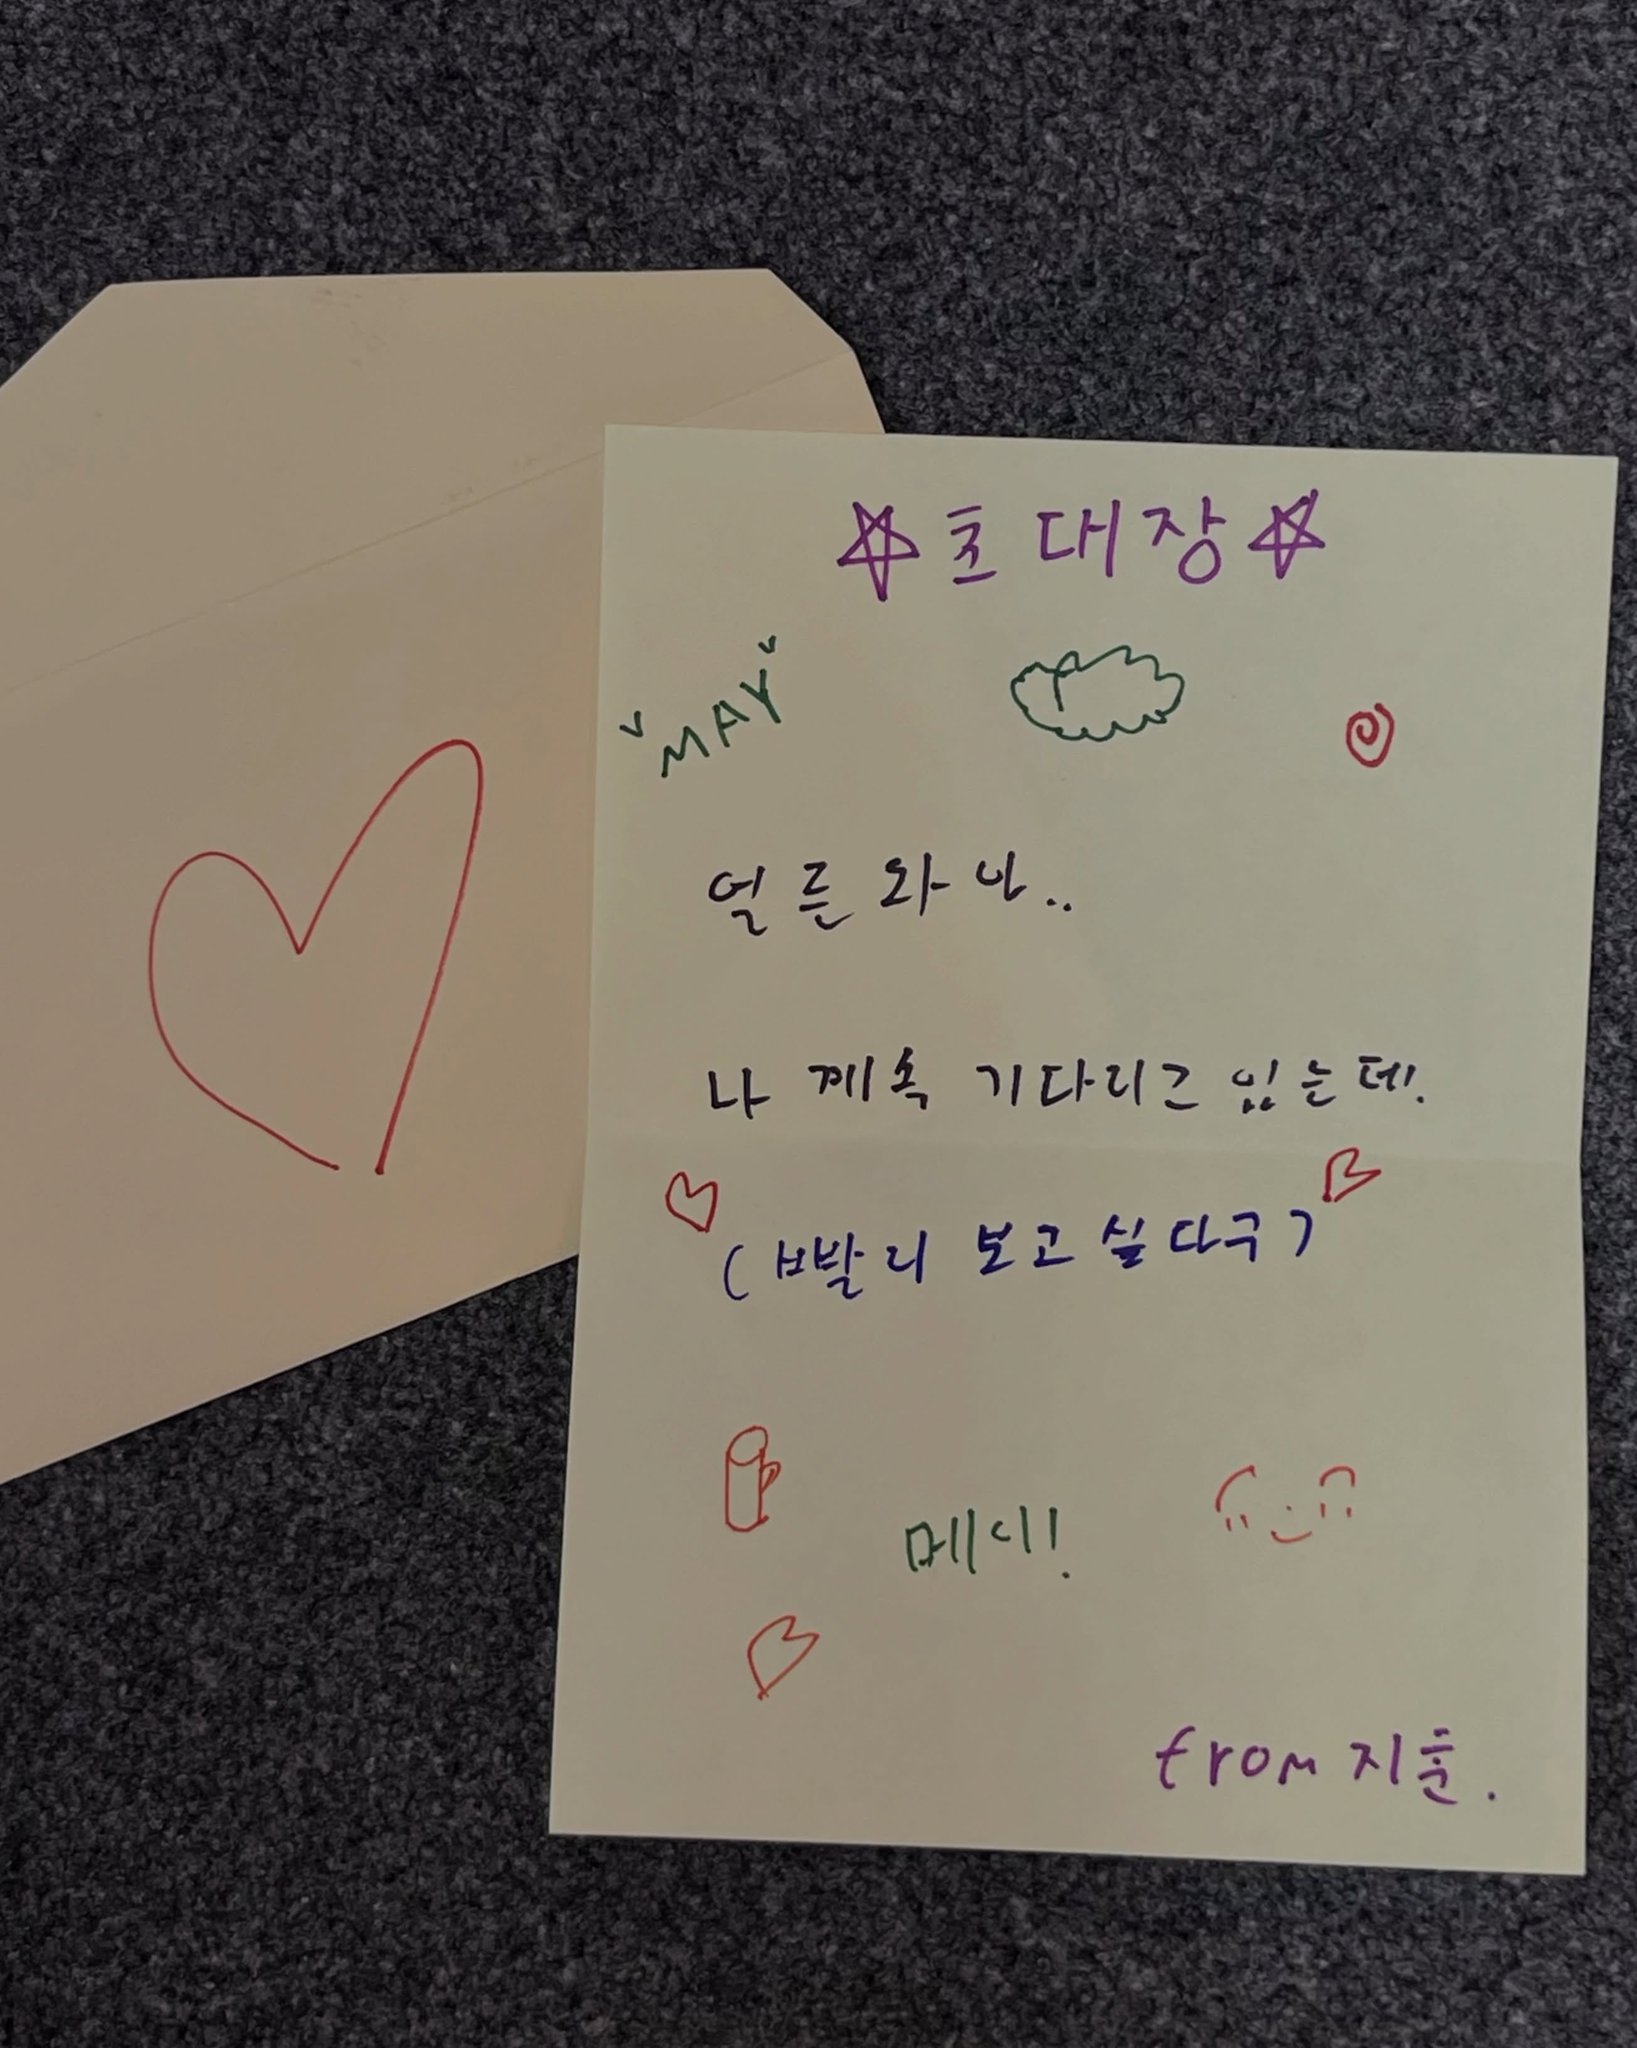 ☆초대장☆
MAY
얼른 와 나..
나 계속 기다리고 있는데!
(빨리 보고싶다구)
메이!
from 지훈.